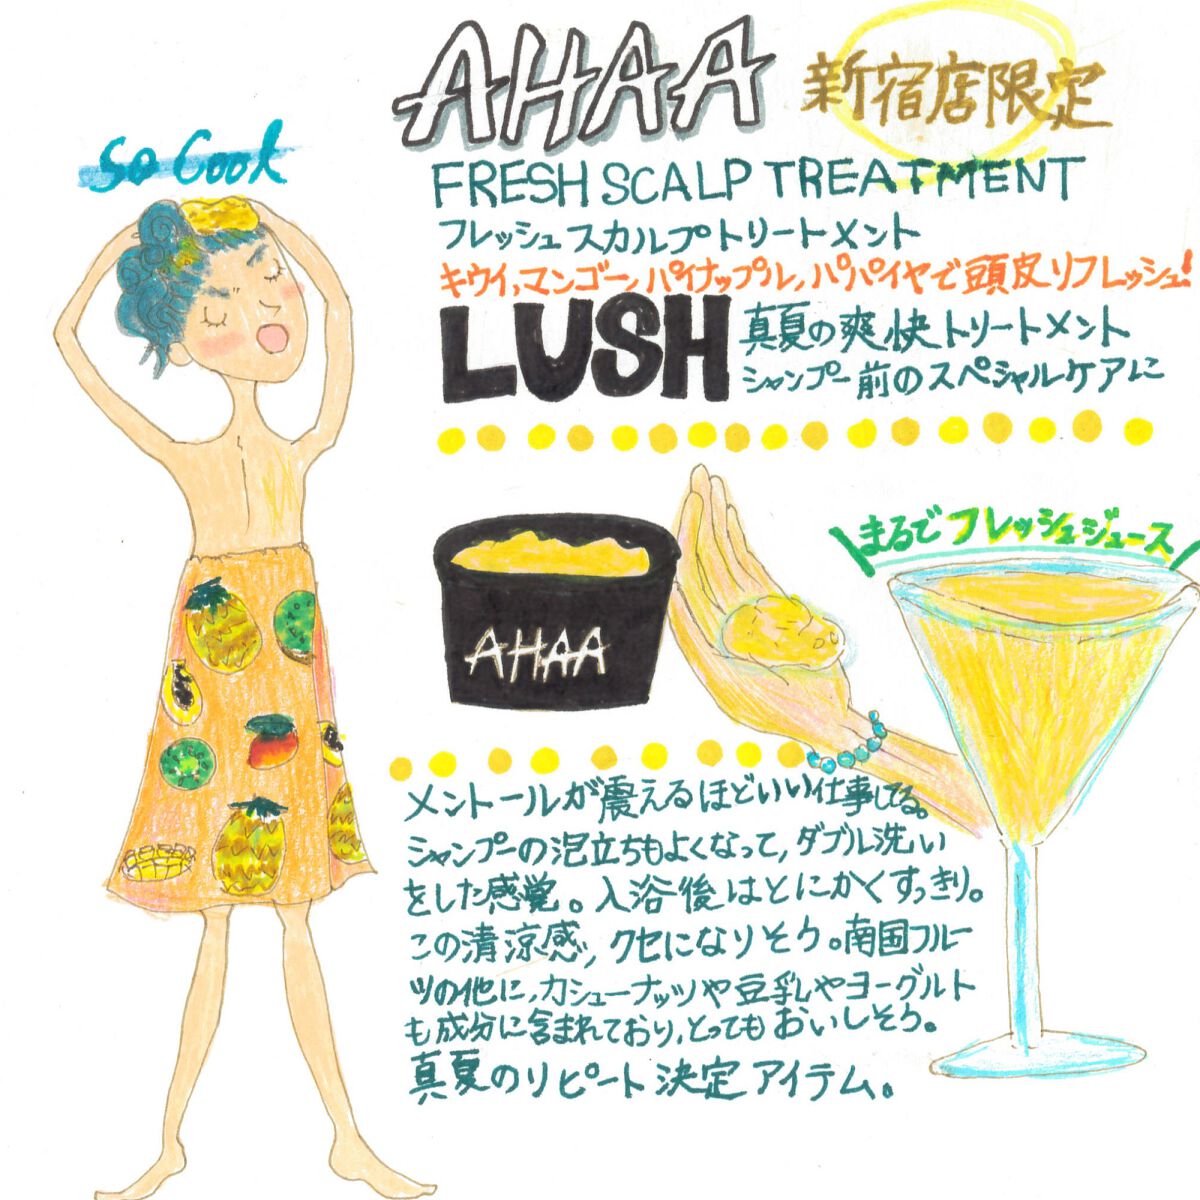 AHAA
新宿店限定
So Cool
FRESH SCALP TREATMENT
フレッシュスカルプトリートメント
キウイ,マンゴー,パイナップル,パパイヤで頭皮リフレッシュ!
LUSH
真夏の爽快トリートメント
シャンプー前のスペシャルケアに
\まるでフレッシュジュース/
AHAA
メントールが震えるほどいい仕事してる。
シャンプーの泡立ちもよくなって,ダブル洗い
をした感覚。入浴後はとにかくすっきり。
この清涼感,クセになりそう。南国フルー
ツの他に,カシューナッツや豆乳やヨーグルト
も成分に含まれており,とってもおいしそう。
真夏のリピート決定アイテム。